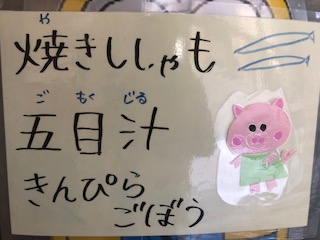 や
焼きししゃも
ご もく じる
五目汁
きんぴら
ごぼう